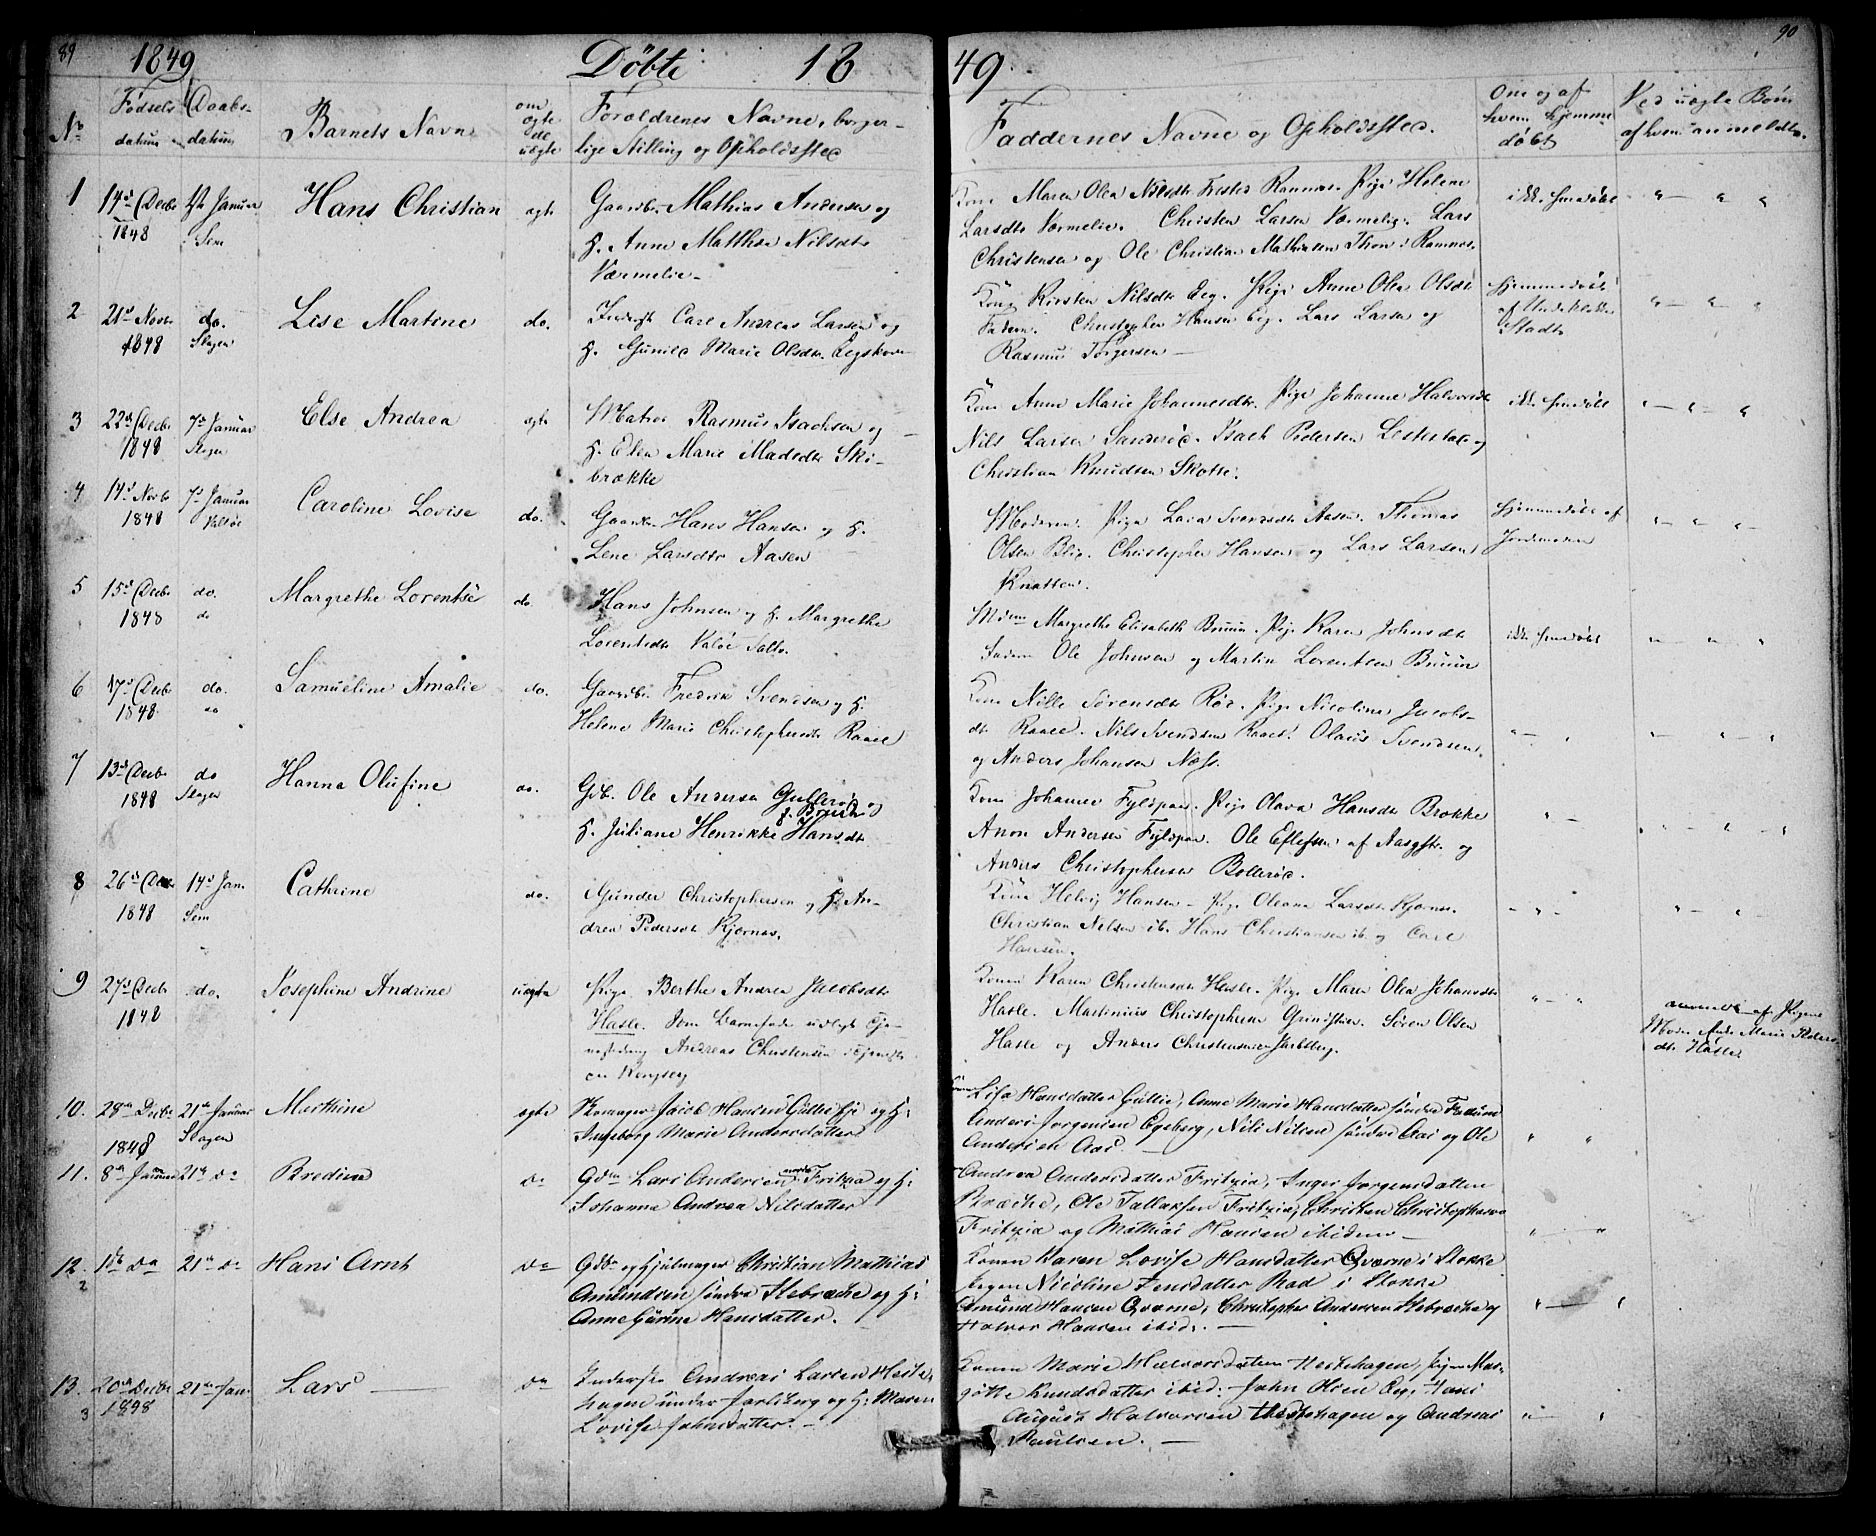 89
1849
Døbte 18
49.
90
No
Fødsels datum
Daabs- datum
Barnets Navn
om ægte eller uægte
Forældrenes Navne, borger-
lige Stilling og Opholdssted
Faddernes Navne og Opholdssted.
Om og af hvem hjemme døbt
Ved uægte Børn af hvem anmeldte.
1
14de Decbr 1848
1ste Januar Sem
Hans Christian
ægte
Gaardbr. Mathias Andersen og
H. Anne Matthea Nilsdtr
Værmelie
Kone Maren Olea Nilsdtr Ramnæs. Pige Helene
Larsdtr Værmelie. Christen Larsen Værmelie. Lars
Christensen og Ole Christian Mathiesen Thon i Ramnæs.
ikke hjemdøbt
2
21de Novbr 1848
do. Slagen
Lise Martine
do.
Carl Andreas Larsen og
H. Gunild Marie Olsdtr. Eegskoven
Kone Kirsten Nilsdtr Eeg. Pige Anne Olea Olsdtr
Faderen. Christopher Hansen Eeg. Lars Larsen og
Rasmus Torgersen
hjemmedøbt
3
22de Decbr 1848
7de Januar Slagen
Else Andrea
ægte
Matros Rasmus Isachsen og
H. Elen Marie Madsdtr Ski-
brække
Kone Anne Marie Johannesdtr. Pige Johanne Halvorsdtr
Nils Larsen Sanderød. Isach Pedersen og
Christian Knudsen Skotte.
ikke hjemdøbt
4
14de Novbr 1848
7de Januar Valløe
Caroline Lovise
do.
Gaardbr. Hans Hansen og H.
Lene Larsdtr Aasen
Moderen. Pige Lava Svensdtr Aasen. Thomas
Olsen Blix. Christopher Hansen og Lars Larsen
Knatten.
hjemmedøbt af Jordemoderen
5
15de Decbr 1848
do. do
Margrethe Lorentse
do.
Hans Johnsen og H. Margrethe
Lorentsdtr Valøe Saltv.
Margrethe Elisabeth Bruun. Pige Karen Johnsdtr
Faderen Ole Johnsen og Martin Lorentsen Bruun
ikke hjemdøbt
6
17de Decbr 1848
do. do
Samueline Amalie
do.
Gaardbr. Fredrik Svendsen og H.
Helene Marie Christophersdtr Raael
Kone Nille Sørensdtr Røe. Pige Nicoline Jacobs-
dtr Raael. Nils Svendsen Raael. Olaus Svendsen.
og Anders Johansen Næss.
7
13de Decbr 1848
do Slagen
Hanna Olufine
do.
Gdb. Ole Andersen Gullerød og
H. Juliane Henrikke Hansdtr
Kone Johanne Fyldpaa. Pige Olava Hansdtr Brokke
Anon Andersen Fyldpaa. Ole Ellefsen af Aasgst. og
Anders Christophersen Bollerød.
8
26de Decbr 1848
14de Jan. Sem
Cathrine
do.
Gunder Christophersen og H. An-
drea Pedersdtr Kjærnæs.
Kone Helvig Hansen - Pige Oleana Larsdtr Kjærnæs.
Christian Nilsen ib. Hans Christiansen ib. og Carl
Hansen.
9
27de Decbr 1848
do.
Josephine Andrine
uægte
Pige Berthe Andrea Jacobsdtr
Hasle. Som Barnefader udlagt
Andreas Christensen
Kongsberg
Konen Karen Christensdtr Hasle. Pige Maren Olea Johansdtr
Hasle. Martinius Christophersen Grindstuen. Søren Olsen
Hasle og Anders Christensen Jarlsberg.
anmeldt af Pigens
Moder Marie Peders-
dtr Hasle
10.
28de Decbr 1848
21de Januar Slagen
Marthine
ægte
Skomager Jacob Hansen Gullie Eje og H:
Ingeborg Marie Andersdatter
Konen Lisa Hansdatter Gullie, Anne Marie Hansdatter søndre
Anders Jorgensen Egeberg, Nils Nilsen søndre Aas og Ole
Andersen Aas.
11.
8de Januar
21de do
Bredine
do
Gdmd Lars Andersen nordre Fritzøa og H:
Johanna Andrea Nilsdatter
Andrea Andersdatter Fritzøa, Inger Jorgensdatter
Bræche, Ole Tallaksen Fritzøa, Christen Christophersen
Fritzøa og Mathias Hansen ibidem
12. 2
1ste do
21de do
Hans Arnt
do
Gdbr og Hjulmager Christian Mathias
Amundsen søndre Stebræche og H:
Anne Gurine Hansdatter.
Konen Karen Lovise Hansdatter Qværne i Stokke
Pigen Nicoline Jensdatter Rød i Stokke
Amund Hansen Qværne, Christopher Andersen Stebræche og
Halvor Hansen ibid.
13. 3
20de Decbr 1848
21de Jan.
Lars
do
Inderste Andreas Larsen Heste-
hagen under Jarlsberg og H: Maren
Lovise Johnsdatter.
Konen Marie Halvorsdatter Hestehagen, pigen Mar-
gitte Knudsdatter ibid: John Olsen Eeg, Hans
August Halvorsen Hestehagen og Andreas
Paulsen.